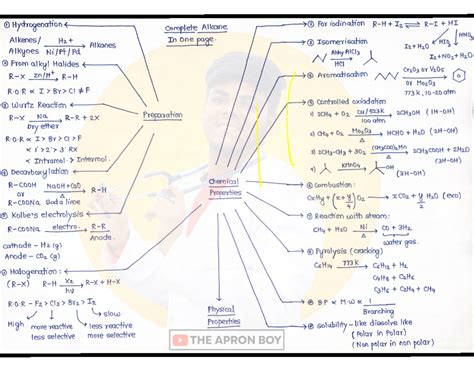 Complete Alkane
In One page.
① Hydrogenation
Alkenes/ H₂ +
Alkynes Ni/Pt/Pd → Alkanes
② From alkyl Halides
R-X Zn/H⁺ → R-H
R·O·R ∝ I > Br > Cl ≠ F
③ Wurtz Reaction
R-X Na → R-R + 2X
Dry ether
R·O·R ∝ I > Br > Cl > F
∝ 1° > 2° > 3° RX
∝ Intramol > Intermol.
④ Decarboxylation
R-COOH NaOH+CaO → R-H
R-COONa Soda lime
⑤ Kolbe's electrolysis
R-COONa electro. → R-R
Anode.
cathode - H₂ (g)
Anode - CO₂ (g)
① Halogenation:
(R-X) R-H X₂ → R-X + H-X
hν
R·O·R - F₂ > Cl₂ > Br₂ > I₂
High more reactive less selective
less reactive more selective
slow
Preparation
Chemical
Properties
Physical
Properties
② For iodination R-H + I₂ ⇌ R-I + HI
HIO₃
HNO₃
I₂ + H₂O
I₂ + NO₂ + H₂O
③ Isomerisation
Anhy AlCl₃
HCl
④ Aromatisation Cr₂O₃ or V₂O₅
or Mo₂O₃
773 K, 10-20 atm
⑤ Controlled oxidation
1) CH₄ + O₂ Cu/523K → 2CH₃OH (1H-OH)
100 atm
2) CH₄ + O₂ Mo₂O₃ → HCHO + H₂O (2H-OH)
3) 2CH₃-CH₃ + 3O₂ (CH₃COO)₂Mn → 2CH₃COOH + 2H₂O
(3H-OH)
4) KMnO₄ → OH (3H-OH)
⑥ Combustion:
CxHy + (x + y/4) O₂ → xCO₂ + y/2 H₂O (exo)
⑦ Reaction with steam:
CH₄ + H₂O Ni → CO + 3H₂
Δ
water gas.
⑧ Pyrolysis (cracking)
C₆H₁₄ 773 K → C₆H₁₂ + H₂
C₄H₈ + C₂H₆
C₃H₆ + C₂H₄ + CH₄
① BP ∝ M·W ∝ 1
Branching
② Solubility - like dissolve like
(Polar in Polar)
(Non polar in non polar)
THE APRON BOY